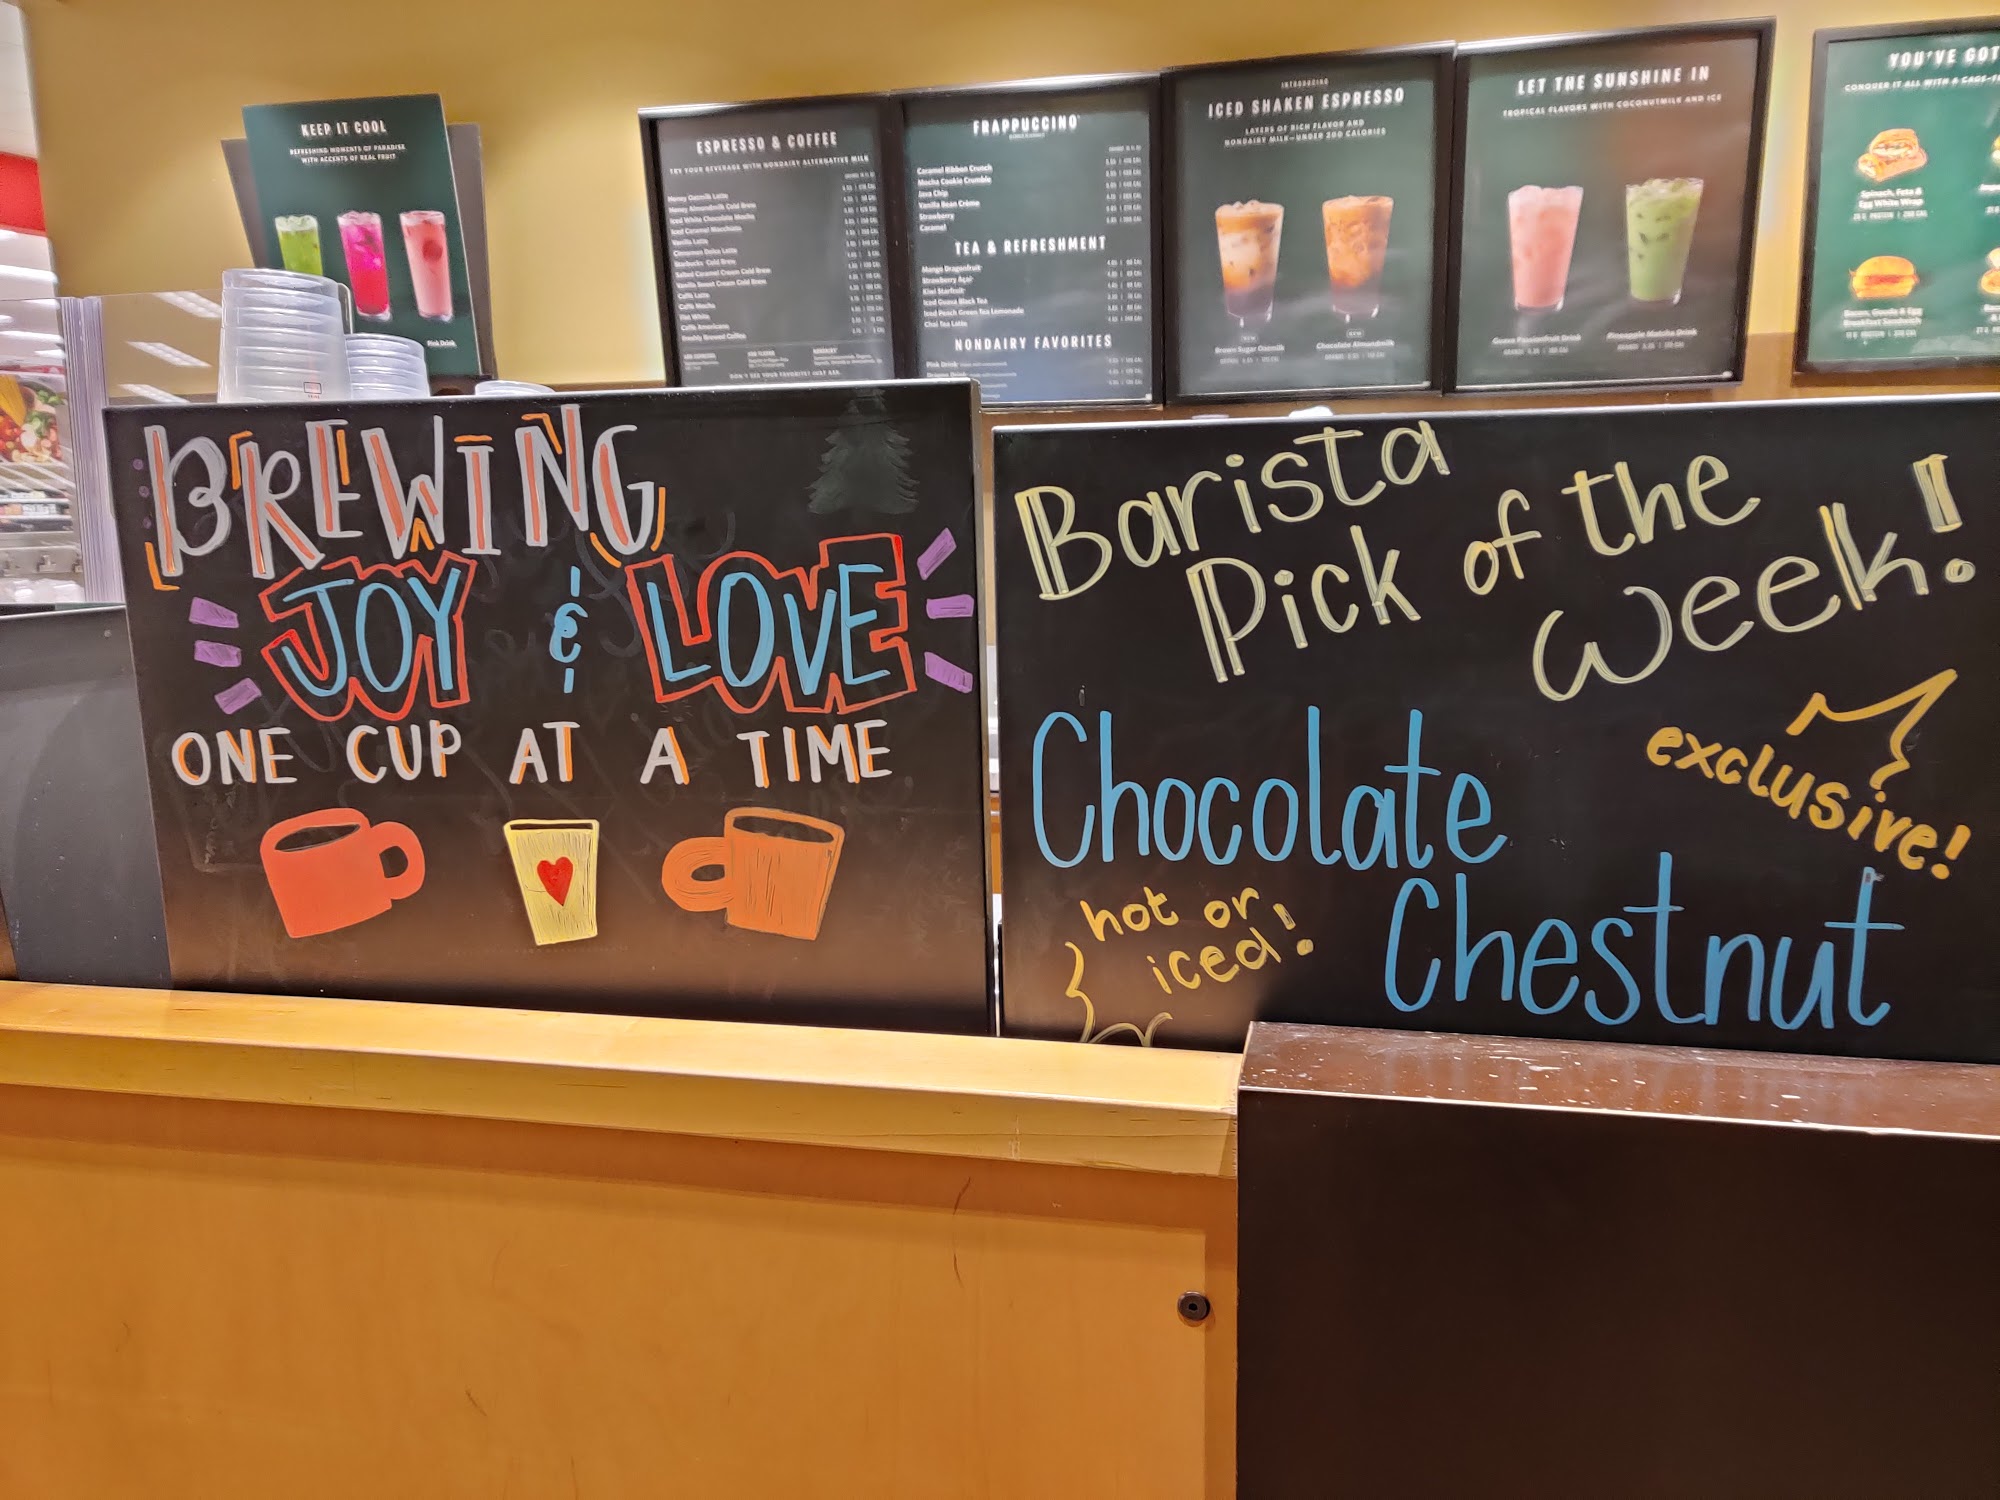 KEEP IT COOL
REFRESHING MOMENTS OF PARADISE
WITH ACCENTS OF REAL FRUIT
Pink Drink
ESPRESSO & COFFEE
TRY YOUR BEVERAGE WITH NONDAIRY ALTERNATIVE MILK
Honey Oatmilk Latte
Honey Almondmilk Cold Brew
Iced White Chocolate Mocha
Iced Caramel Macchiato
Vanilla Latte
Cinnamon Dolce Latte
Starbucks Cold Brew
Salted Caramel Cream Cold Brew
Vanilla Sweet Cream Cold Brew
Caffè Latte
Caffè Mocha
Flat White
Caffè Americano
Freshly Brewed Coffee
DON'T SEE YOUR FAVORITE? JUST ASK.
FRAPPUCCINO
Caramel Ribbon Crunch
Mocha Cookie Crumble
Java Chip
Vanilla Bean Crème
Strawberry
Caramel
TEA & REFRESHMENT
Mango Dragonfruit
Strawberry Açaí
Kiwi Starfruit
Iced Guava Black Tea
Iced Peach Green Tea Lemonade
Chai Tea Latte
NONDAIRY FAVORITES
Pink Drink
Dragon Drink
INTRODUCING
ICED SHAKEN ESPRESSO
LAYERS OF RICH FLAVOR AND
NONDAIRY MILK—UNDER 200 CALORIES
NEW
Brown Sugar Oatmilk
NEW
Chocolate Almondmilk
LET THE SUNSHINE IN
TROPICAL FLAVORS WITH COCONUTMILK AND ICE
Guava Passionfruit Drink
Pineapple Matcha Drink
YOU'VE GOT
CONQUER IT ALL WITH A CAGE-F
Spinach, Feta &
Egg White Wrap
Bacon, Gouda & Egg
Breakfast Sandwich
BREWING
JOY & LOVE
ONE CUP AT A TIME
Barista
Pick of the
Week!
exclusive!
Chocolate
Chestnut
hot or
iced!